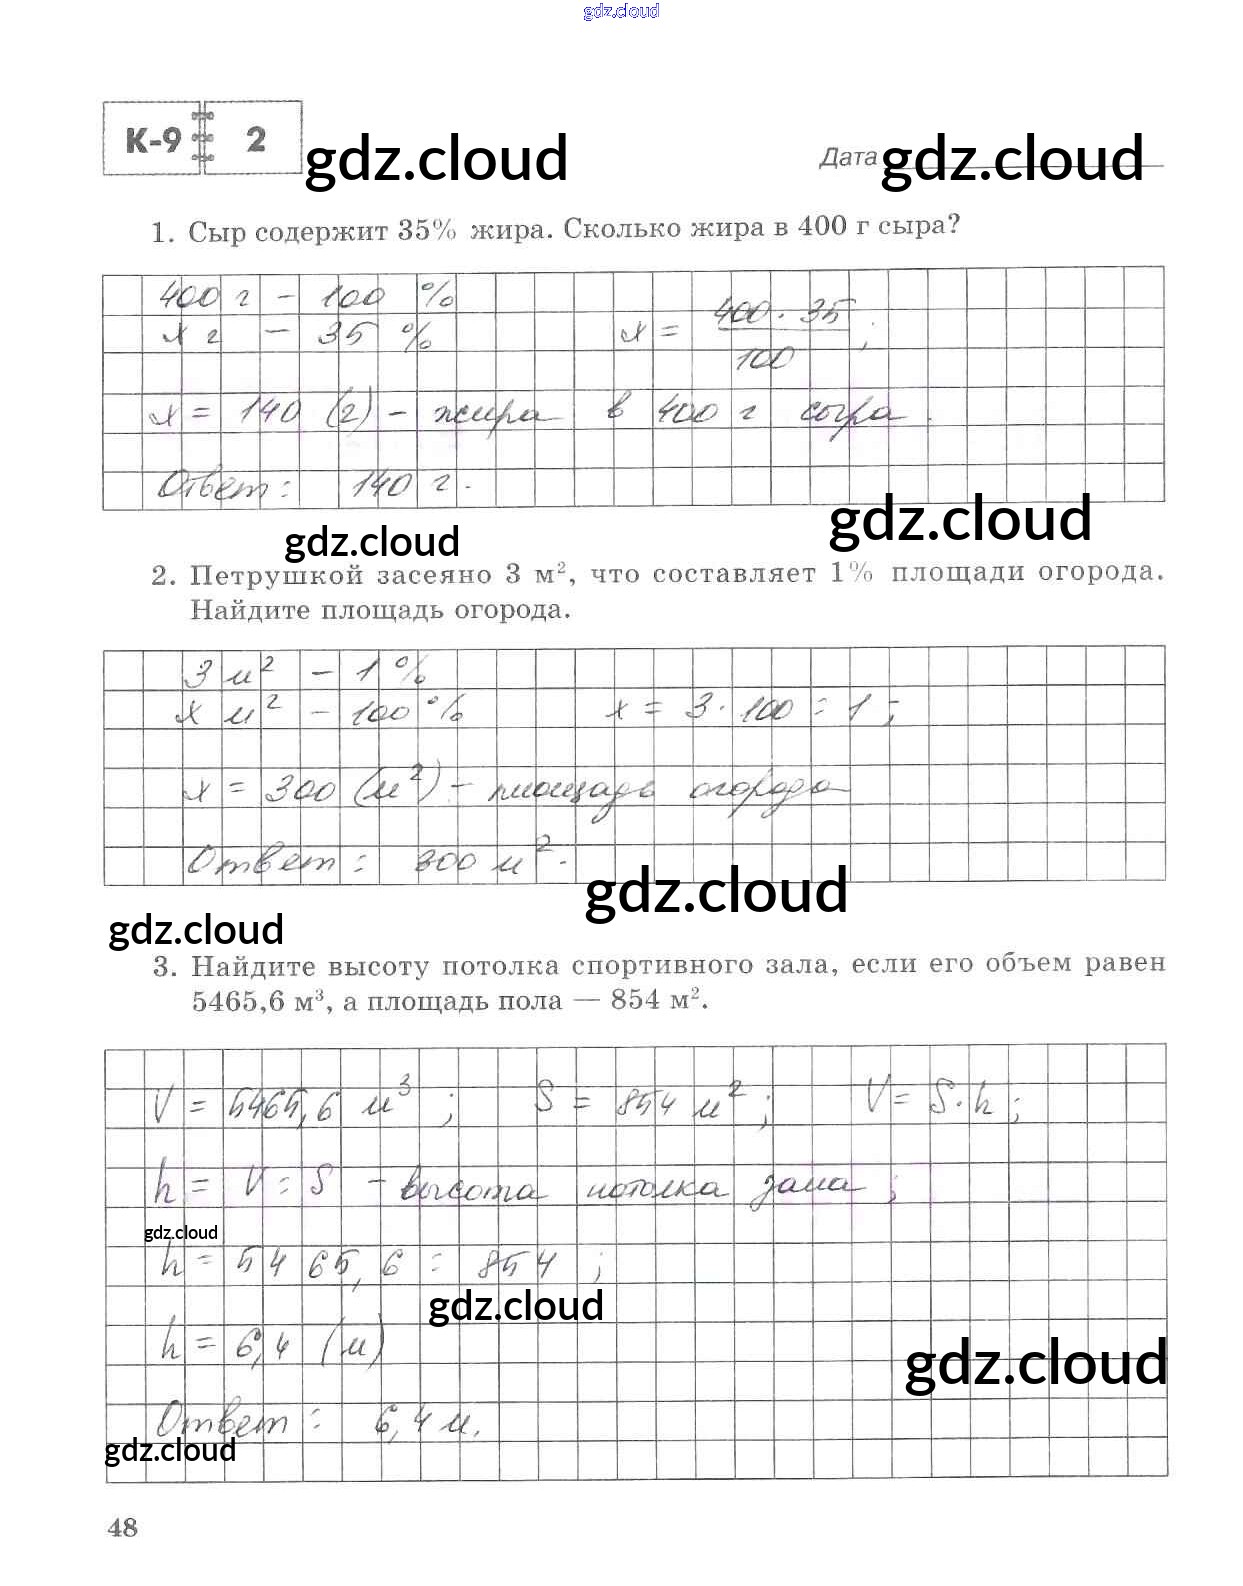 gdz.cloud
К-9 2 gdz.cloud Дата gdz.cloud
1. Сыр содержит 35% жира. Сколько жира в 400 г сыра?
400 г - 100 %
x г - 35 % x = 400 · 35 / 100 ;
x = 140 (г) - жира в 400 г сыра.
Ответ: 140 г.
gdz.cloud
gdz.cloud
2. Петрушкой засеяно 3 м², что составляет 1% площади огорода.
Найдите площадь огорода.
3 м² - 1 %
x м² - 100 % x = 3 · 100 : 1 ;
x = 300 (м²) - площадь огорода
Ответ: 300 м².
gdz.cloud
gdz.cloud
3. Найдите высоту потолка спортивного зала, если его объем равен
5465,6 м³, а площадь пола — 854 м².
V = 5465,6 м³ ; S = 854 м² ; V = S · h ;
h = V : S - высота потолка зала ;
gdz.cloud
h = 5465,6 : 854 ;
gdz.cloud
h = 6,4 (м)
gdz.cloud
Ответ: 6,4 м.
gdz.cloud
48